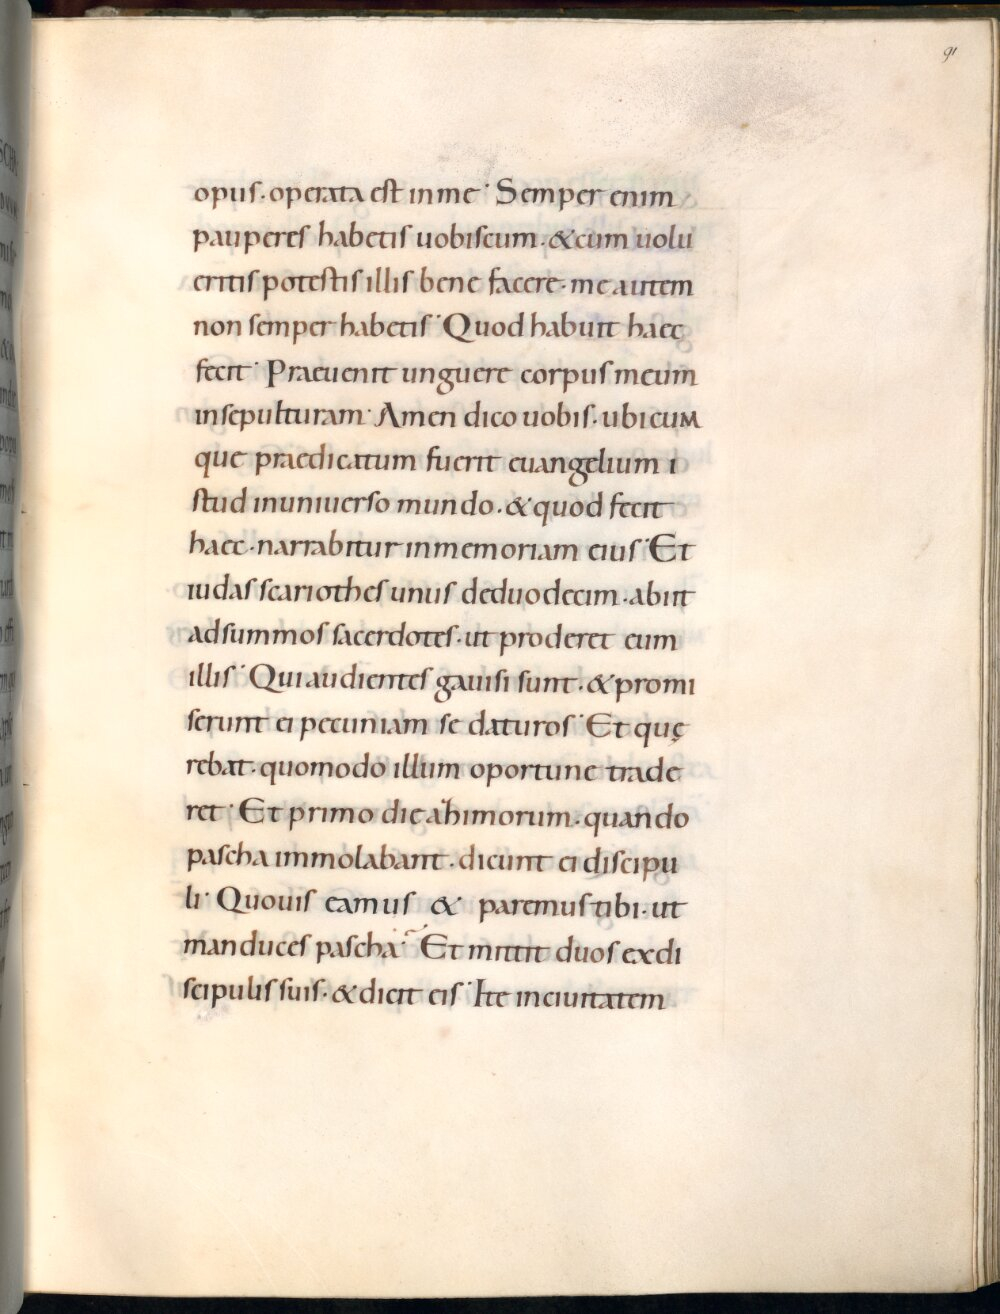 91
opus. operata est in me. Semper enim
pauperes habetis uobiscum. & cum uolu
eritis potestis illis bene facere. me autem
non semper habetis. Quod habuit haec
fecit. Praeuenit unguere corpus meum
in sepulturam. Amen dico uobis. ubicum
que praedicatum fuerit euangelium i
stud in uniuerso mundo. & quod fecit
haec. narrabitur in memoriam eius. Et
iudas scariothes unus de duodecim. abiit
ad summos sacerdotes. ut proderet eum
illis. Qui audientes gauisi sunt. & promi
serunt ei pecuniam se daturos. Et quę
rebat. quomodo illum oportune trade
ret. Et primo die ahimorum. quando
pascha immolabant. dicunt ei discipu
li. Quo uis eamus & paremus tibi. ut
manduces pascha. Et mittit duos ex di
scipulis suis. & dicit eis. Ite in ciuitatem